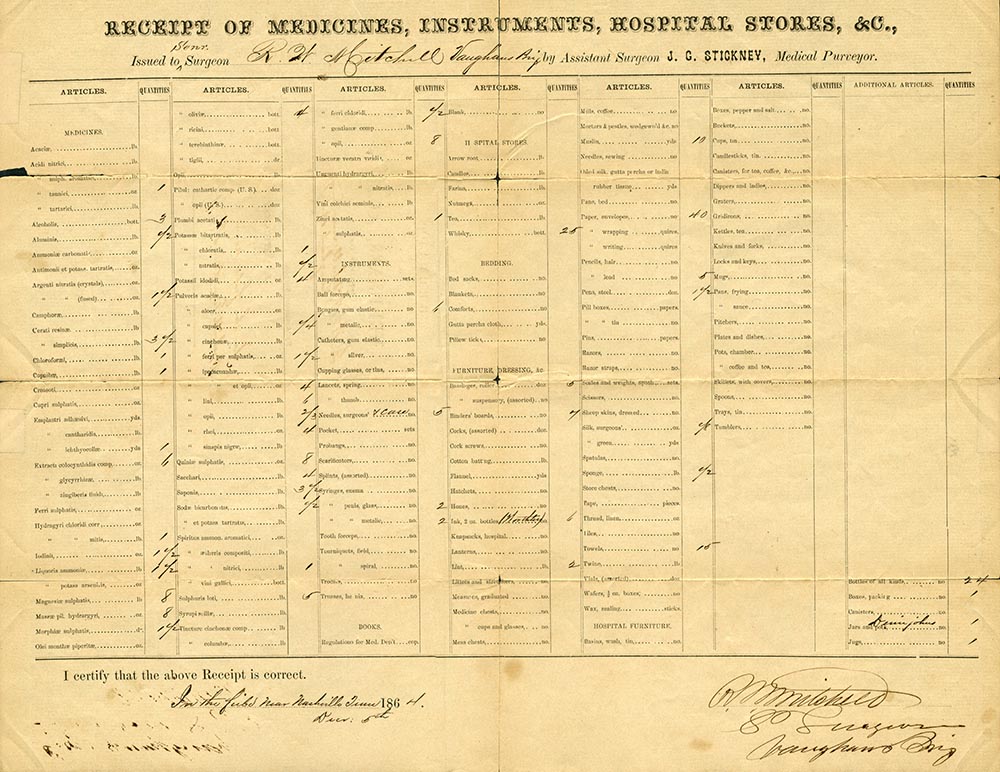 RECEIPT OF MEDICINES, INSTRUMENTS, HOSPITAL STORES, &C.,
Issued to Senr. Surgeon R. W. Mitchell Vaughans Brig by Assistant Surgeon J. G. STICKNEY, Medical Purveyor.
ARTICLES. QUANTITIES
MEDICINES.
Acaciæ, lb.
Acidi nitrici, lb.
" sulph. aromatici, oz.
" tannici, oz. 1
" tartarici, oz.
Alcoholis, bott. 3
Aluminis, oz. 1/2
Ammoniæ carbonat. oz.
Antimonii et potass. tartratis, oz.
Argenti nitratis (crystals), oz.
" " (fused), oz. 1 1/2
Camphoræ, lb.
Cerati resinæ, lb.
" simplicis, lb. 3 1/2
Chloroformi, lb. 1
Copaibæ, lb. 1
Creosoti, oz.
Cupri sulphatis, oz.
Emplastri adhæsivi, yds.
" cantharidis, lb.
" ichthyocollæ, yd. 1
Extracti colocynthidis comp. oz. 6
" glycyrrhizæ, lb.
" zingiberis fluidi, oz.
Ferri sulphatis, oz.
Hydrargyri chloridi corr. oz.
" " mitis, lb. 1
Iodinii, oz. 1 1/2
Liquoris ammoniæ, lb. 1 1/2
" potass arsenitis, oz.
Magnesiæ sulphatis, lb. 8
Massæ pil. hydrargyri, oz. 8
Morphiæ sulphatis, dr. 1 1/2
Olei menthæ piperitæ, oz.
ARTICLES. QUANTITIES
" olivæ, bott. 4
" ricini, bott.
" terebinthinæ, bott.
" tiglii, dr.
Opii,
Pilul: cathartic comp. (U. S.) doz
" opii (U. S.)
Plumbi acetatis
Potassæ bitartratis,
" chloratis, 1
" nitratis, 1/2
Potassii Iodidi, oz. 4
Pulveris acaciæ,
" aloes,
" capsici, 1/4
" cinchonæ,
" ferri per sulphatis, oz. 1 1/2
" ipecacuanhæ,
" " et opii, oz. 4
" lini, lb. 6
" opii, 2/2
" rhei, oz. 4
" sinapis nigræ, lb.
Quiniæ sulphatis, oz. 8
Sacchari, lb. 4
Saponis, lb. 3 1/2
Sodæ bicarbonatis, 1/2
" et potass tartratis, oz.
Spiritus ammon. aromatici, oz.
" ætheris compositi, lb
" " nitrici, lb 1
" vini gallici, bott.
Sulphuris loti, lb. 5
Syrupi scillæ, lb.
Tincturæ cinchonæ comp. lb.
" columbæ, lb.
ARTICLES. QUANTITIES
" ferri chloridi, lb. 1/2
" gentianæ comp. lb.
" opii, 8
Tincturæ veratri viridi, oz.
Unguenti hydrargyri,
" " nitratis, lb.
Vini colchici seminis, lb.
Zinci acetatis, oz. 1
" sulphatis, oz.
INSTRUMENTS.
Amputating, sets.
Ball forceps, no.
Bougies, gum elastic, no. 6
" metalic, no.
Catheters, gum elastic, no.
" silver, no.
Cupping glasses, or tins, no.
Lancets, spring, no.
" thumb, no.
Needles, surgeons' & case no. 5
Pocket, sets
Probangs, no.
Scarificators, no.
Splints, (assorted), no.
Syringes, enema no.
" penis, glass, no. 2
" " metalic, no. 2
Tooth forceps, no.
Tourniquets, field, no.
" spiral, no.
Trocars, no.
Trusses, hernia, no.
BOOKS.
Regulations for Med. Dep't cop.
ARTICLES. QUANTITIES
Blank, no.
HOSPITAL STORES.
Arrow root, lb.
Candles, lb.
Farina, lb.
Nutmegs, oz.
Tea, lb.
Whisky, bott. 25
BEDDING.
Bed sacks, no.
Blankets, no.
Comforts, no.
Gutta percha cloth, yds.
Pillow ticks, no.
FURNITURE, DRESSING, &c.
Bandages, roller doz. 5
" suspensory, (assorted) no.
Binders' boards, no. 4
Corks, (assorted) doz.
Cork screws, no.
Cotton batting, lb.
Flannel, yds
Hatchets, no.
Hones, no.
Ink, 2 oz. bottles, no. 6
Knapsacks, hospital, no.
Lanterns, no.
Lint, lb. 2
Litters and stretchers, no.
Measures, graduated no.
Medicine chests, no.
" cups and glasses, no.
Mess chests, no.
ARTICLES. QUANTITIES
Mills, coffee, no
Mortars & pestles, wedgewood &c. no
Muslin, yds 10
Needles, sewing no
Oiled silk, gutta percha or india
rubber tissue, yds
Pans, bed no.
Paper, envelopes, no. 40
" wrapping quires
" writing, quires
Pencils, hair, no.
" lead no. 5
Pens, steel, doz. 1 1/2
Pill boxes papers.
" " tin no.
Pins, papers.
Razors, no.
Razor strops, no.
Scales and weights, apoth. sets.
Scissors, no.
Sheep skins, dressed, no.
Silk, surgeons' oz. 1/8
" green, yds
Spatulas, no.
Sponge, lb. 1/2
Store chests, no.
Tape, pieces.
Thread, linen, oz.
Tiles, no.
Towels, no. 15
Twine, oz.
Vials, (assorted), doz.
Wafers, ½ oz. boxes, no.
Wax, sealing sticks.
HOSPITAL FURNITURE.
Basins, wash, tin, no.
ARTICLES. QUANTITIES
Boxes, pepper and salt, no.
Buckets, no.
Cups, tin no.
Candlesticks, tin, no.
Canisters, for tea, coffee, &c. no.
Dippers and ladles, no.
Graters, no.
Gridirons, no.
Kettles, tea, no.
Knives and forks, no.
Locks and keys, no.
Mugs, no.
Pans, frying no.
" sauce no.
Pitchers, no.
Plates and dishes, no.
Pots, chamber, no.
" coffee and tea, no.
Skillets, with covers, no.
Spoons, no.
Trays, tin no.
Tumblers, no.
ADDITIONAL ARTICLES. QUANTITIES
Bottles of all kinds, no. 24
Boxes, packing no. 1
Canisters no.
Jars and pots, Demijohns no. 1
Jugs, no. 1
I certify that the above Receipt is correct.
In the field near Nashville Tenn 1864.
Decr. 5th
R W Mitchell
S. Surgeon
Vaughans Brig